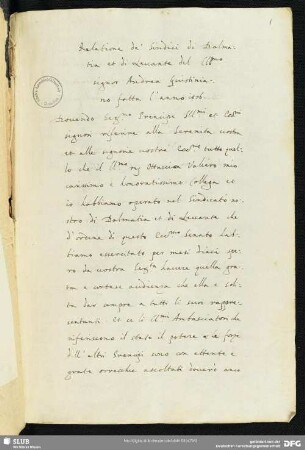 1
Relatione de' Sindici di Dalma-
tia et di Levante del Ill.mo
signor Andrea Giustinia-
no fatta l'anno 1576
Dovendo Ser.mo Prencipe Ill.mi et Ecc.mi
signori riferire alla Serenità vostra
et alle signorie vostre Ecc.me tutto quel-
lo che il Ill.mo Ottaviano Valiero mio
carissimo e honoratissimo Collega et
io habbiamo operato nel Sindicato no-
stro di Dalmatia et di Levante che
d'ordine di questo Ecc.mo Senato hab-
biamo essercitato per mesi dieci spe-
ro da vostra Ser.tà havere quella gra-
ta e cortese audienza che ella è soli-
ta dar sempre a tutti li suoi rappre-
sentanti. Et se li Ill.mi Ambasciatori che
riferiscono il stato il potere e le forze
dell'altri Prencipi sono con attente e
grate orecchie ascoltati doverò anco
SLUB
Wir führen Wissen.